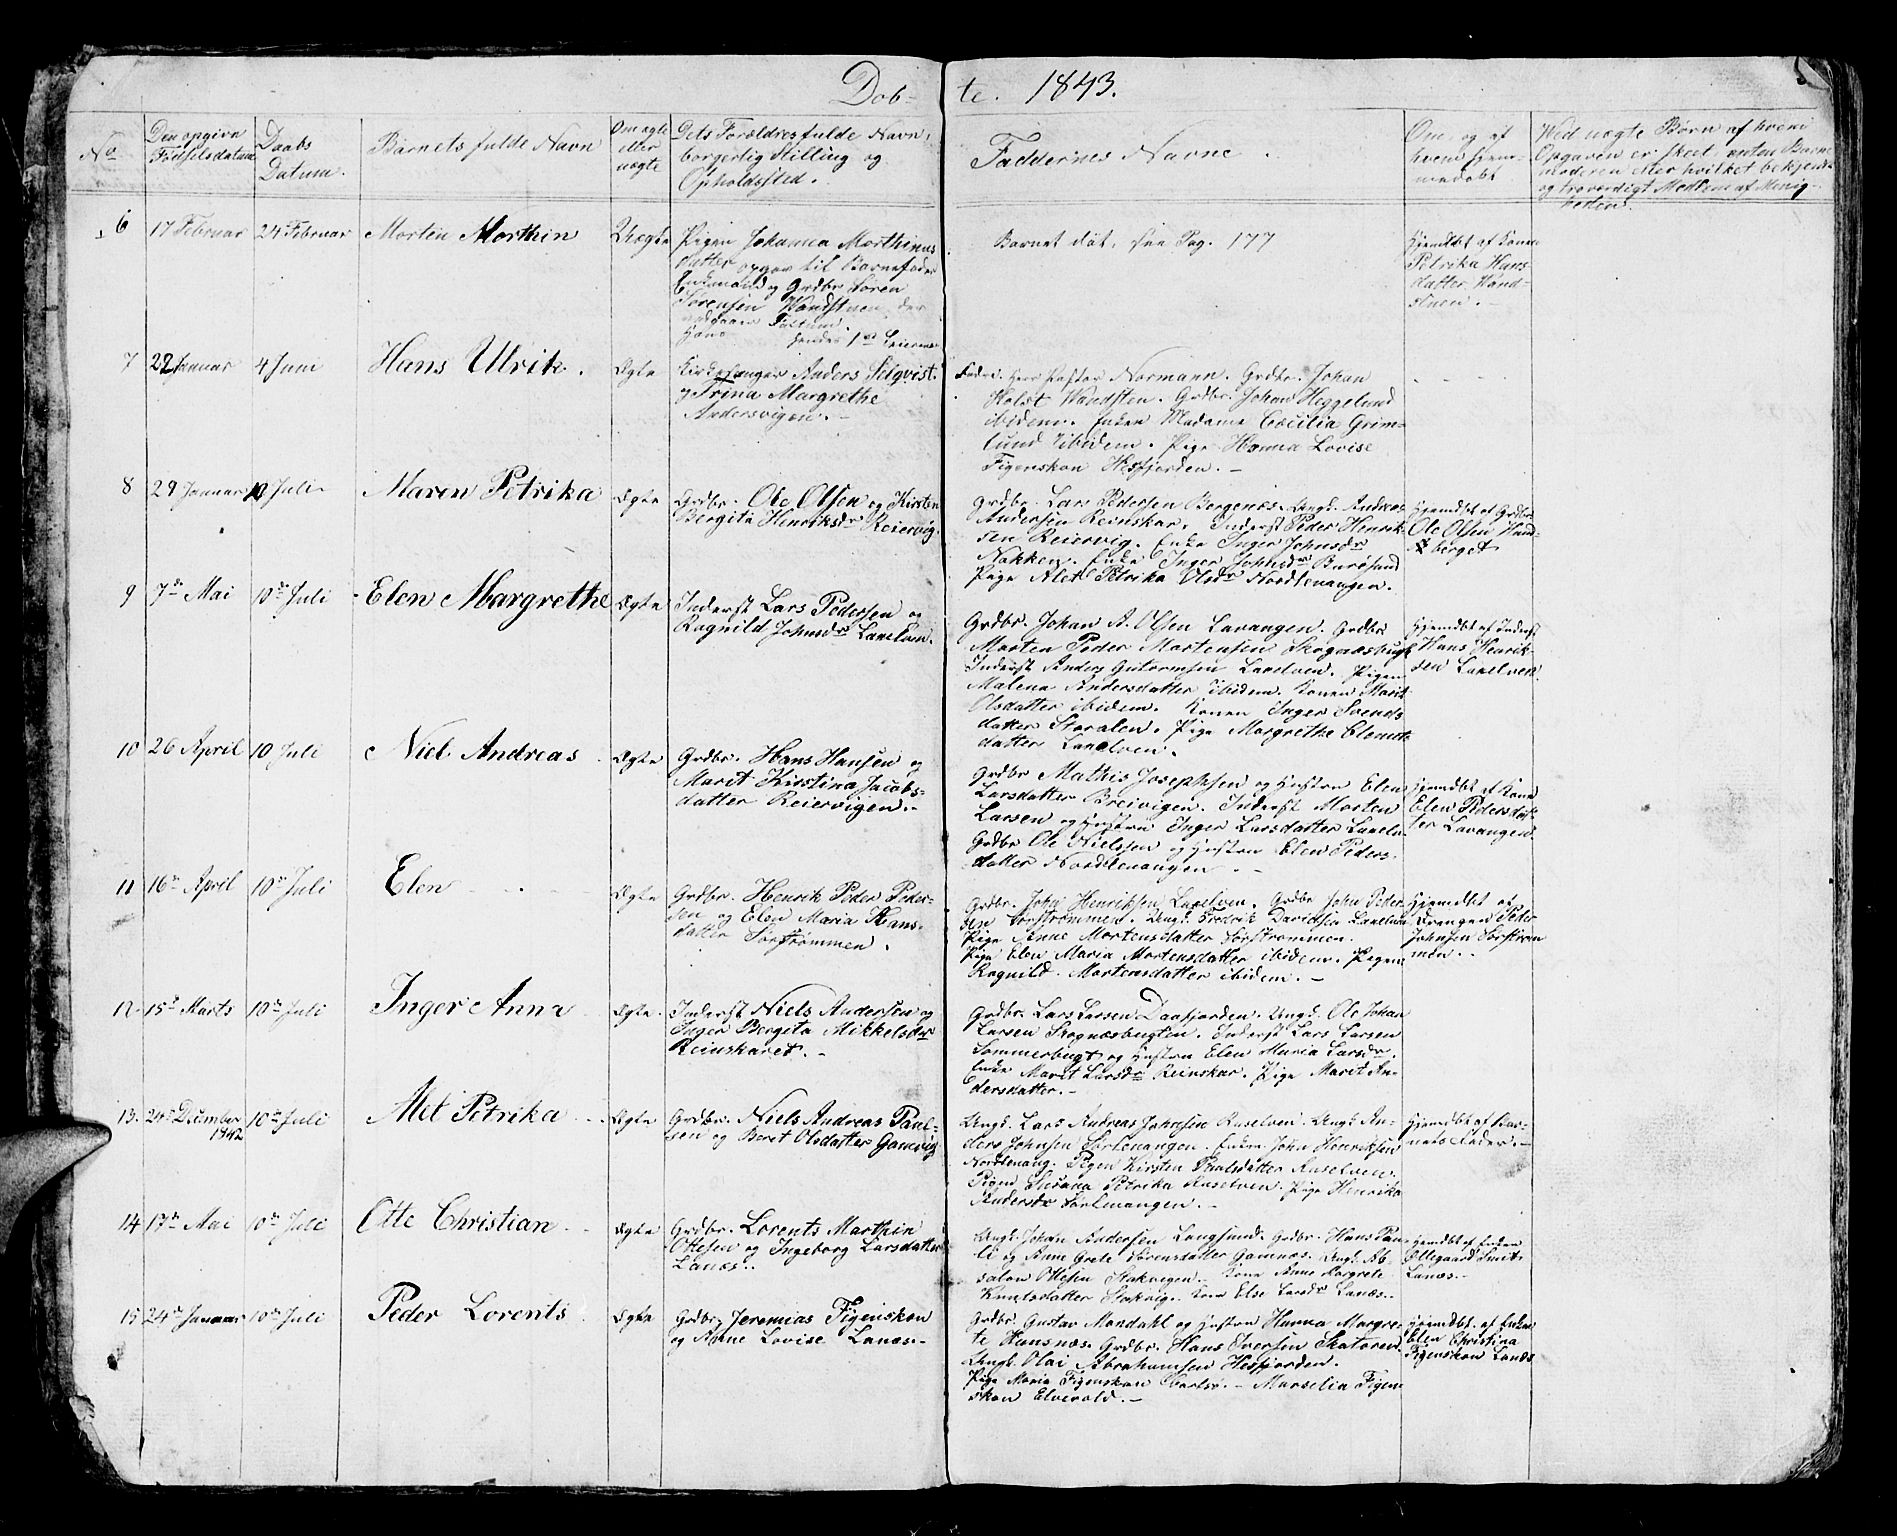 Døb- te. 1843.
No
Den opgivn
Fødselsdatum
Daabs
Datum.
Barnets fulde Navn
Om ægte
eller
uægte
Dets Forældres fulde Navn,
borgerlig Stilling og
Opholdssted.
Faddernes Navne.
Om, og af
hvem hjem-
medøbt
Ved uægte Børn af hvem
Opgaven er skeet, enten Barne
moderen eller hvilket bekjendt
og troværdigt Medlem af Menig-
heden.
6
17 Februar
24 Februar
Morten Morthin
Uægte
Pigen Johanna Morthinus
datter opgav til Barnefader
Enkemand og Grdbr Søren
Sørensen Wandstuen
Barnet død, see Pag. 177
Hjemdøbt af Konen
Petrika Hans-
datter Wand-
stuen.
7
22 Januar
4 Juni
Hans Ulrik.
Ægte
Kirkesanger Anders Selqvist.
og Trina Margrethe
Andersvigen.
Fadd. Herr Pastor Normann. Grdbr. Johan
Holst Wandsten. Grdbr. Johan Heggelund
ibidem. Enken Madame Cæcilia Grim-
lund ibidem. Pige Hanna Lovise
Figenskou Hessfjorden.
8
29 Januar
10 Juli
Maren Petrika
Ægte
Grdbr. Ole Olsen og Kirsten
Bergita Henriksdr Reiervig.
Grdbr. Lars Pedersen Bergenæs. Ungk. Andreas
Andersen Reinskar. Inderst Peder Henrik-
sen Reiervig. Enke Inger Johnsdr
Nakken. Enke Inger Johnsdr Burøsund
Pige Alet Petrika Olsdr Nordlenangen.
Hjemdøbt af Grdbr
Ole Olsen Ham-
berget
9
7de Mai
10de Juli
Elen Margrethe
Ægte
Inderst Lars Pedersen og
Ragnild Johnsdr Lanelven.
Grdbr. Johan A. Olsen Lavangen. Grdbr
Morten Peder Mortensen Skognæsbugt
Inderst Anders Gutormsen Lanelven. Pigen
Malena Andersdatter ibidem. Konen Marit
Olsdatter ibidem. Konen Inger Svends
datter Storalen. Pige Margrethe Clemet
datter Lanelven.
Hjemdøbt af Inderst
Hans Henrik-
sen Lanelven
10
26 April
10 Juli
Niel Andreas
Ægte
Grdbr. Hans Hansen og
Marit Kirstina Jacobs-
datter Reiervigen.
Grdbr Mathis Josephsen og Hustru Elen
Larsdatter Breivigen. Inderst Morten
Larsen og Hustru Inger Larsdatter Lanelv.
Grdbr Ole Nielsen og Hustru Elen Peders-
datter Nordlenangen.
Hjemdøbt af Kone
Elen Pedersdat-
ter Lavangen
11
16de April
10de Juli
Elen
Ægte
Grdbr. Henrik Peder Peder-
sen og Elen Maria Hans-
datter Sørstrømmen.
Grdbr. John Henriksen Lanelven. Grdbr John Peder
sen Sørstrømmen. Ungk. Fredrik Davidsen Lanelven
Pige Anne Mortensdatter Sørstrømmen.
Pige Elen Maria Mortensdatter ibidem. Pigen
Ragnild Mortensdatter ibidem.
Hjemdøbt af
Drengen Peder
Johnsen Sørstrøm
men.
12
15de Marts
10de Juli
Inger Anna
Ægte.
Inderst Niels Andersen og
Inger Bergita Mikkelsdr
Reinskaret.
Grdbr. Lars Larsen Daafjorden. Ungk. Ole Johan
Larsen Skognæsbugten. Inderst Lars Larsen
Sommerbugt og Hustru Elen Maria Larsdr.
Enke Marit Larsdr Reinskar. Pige Marit An-
dersdatter.
13.
24de December
1842
10de Juli
Alet Petrika
Ægte
Grdbr. Niels Andreas Paul-
sen og Beret Olsdatter Gamvig
Ungk. Lars Andreas Johnsen Kaselven. Ungk. An-
ders Johnsen Sørlenangen. Enken John Henriksen
Nordlenang. Pigen Kirsten Paulsdatter Kaselven.
Pigen Susana Petrika Kaselven. Pige Henrika
Andersdr Sørlenangen.
Hjemdøbt af Bar-
nets Fader.
14
17de Mai
10de Juli
Otte Christian
Ægte
Grdbr. Lorents Marthin
Ottesen og Ingeborg Larsdatter
Lanæs.
Ungk. Johan Andersen Langsund. Grdbr. Hans Pau-
li og Anne Grete Sørensdatter Gamnæs. Ungk. Ab-
salon Ottesen Stakvigen. Kone Anne Margrete
Knutsdatter Stakvig. Kone Else Larsdr Lanæs.
Hjemdøbt af Enken
Ollegaard Smit
Lanæs.
15
24de Januar
10de Juli
Peder Lorents
Ægte
Grdbr. Jeremias Figenskou
og Anne Lovise Lanæs.
Grdbr. Gustav Mandahl og Hustru Hanna Margre-
te Hansnæs. Grdbr. Hans Iversen Skatøren
Ungk. Olai Abrahamsen Hessfjorden.
Pige Maria Figenskou. Marselia Figen
skou Elvevold.
Hjemdøbt af Enken
Elen Christina
Figenskou Lanæs